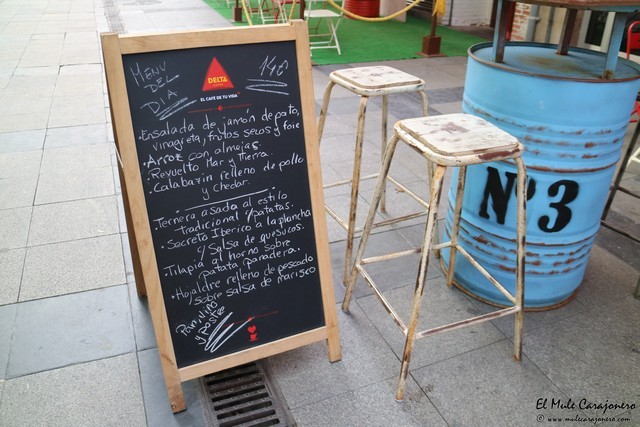 MENÚ
DEL
DIA
DELTA
CAFÉS
EL CAFÉ DE TU VIDA
14€
·Ensalada de jamón de pato,
vinagreta, frutos secos y foie
·Arroz con almejas.
·Revuelto Mar y Tierra.
·Calabacín relleno de pollo
y chedar.
·Ternera asada al estilo
tradicional c/patatas.
·Secreto Iberico a la plancha
c/ Salsa de quesucos.
·Tilapia al horno sobre
patata panadera.
·Hojaldre relleno de pescado
sobre salsa de marisco
Pan, vino
y postre
Nº3
El Mule Carajonero
© www.mulecarajonero.com